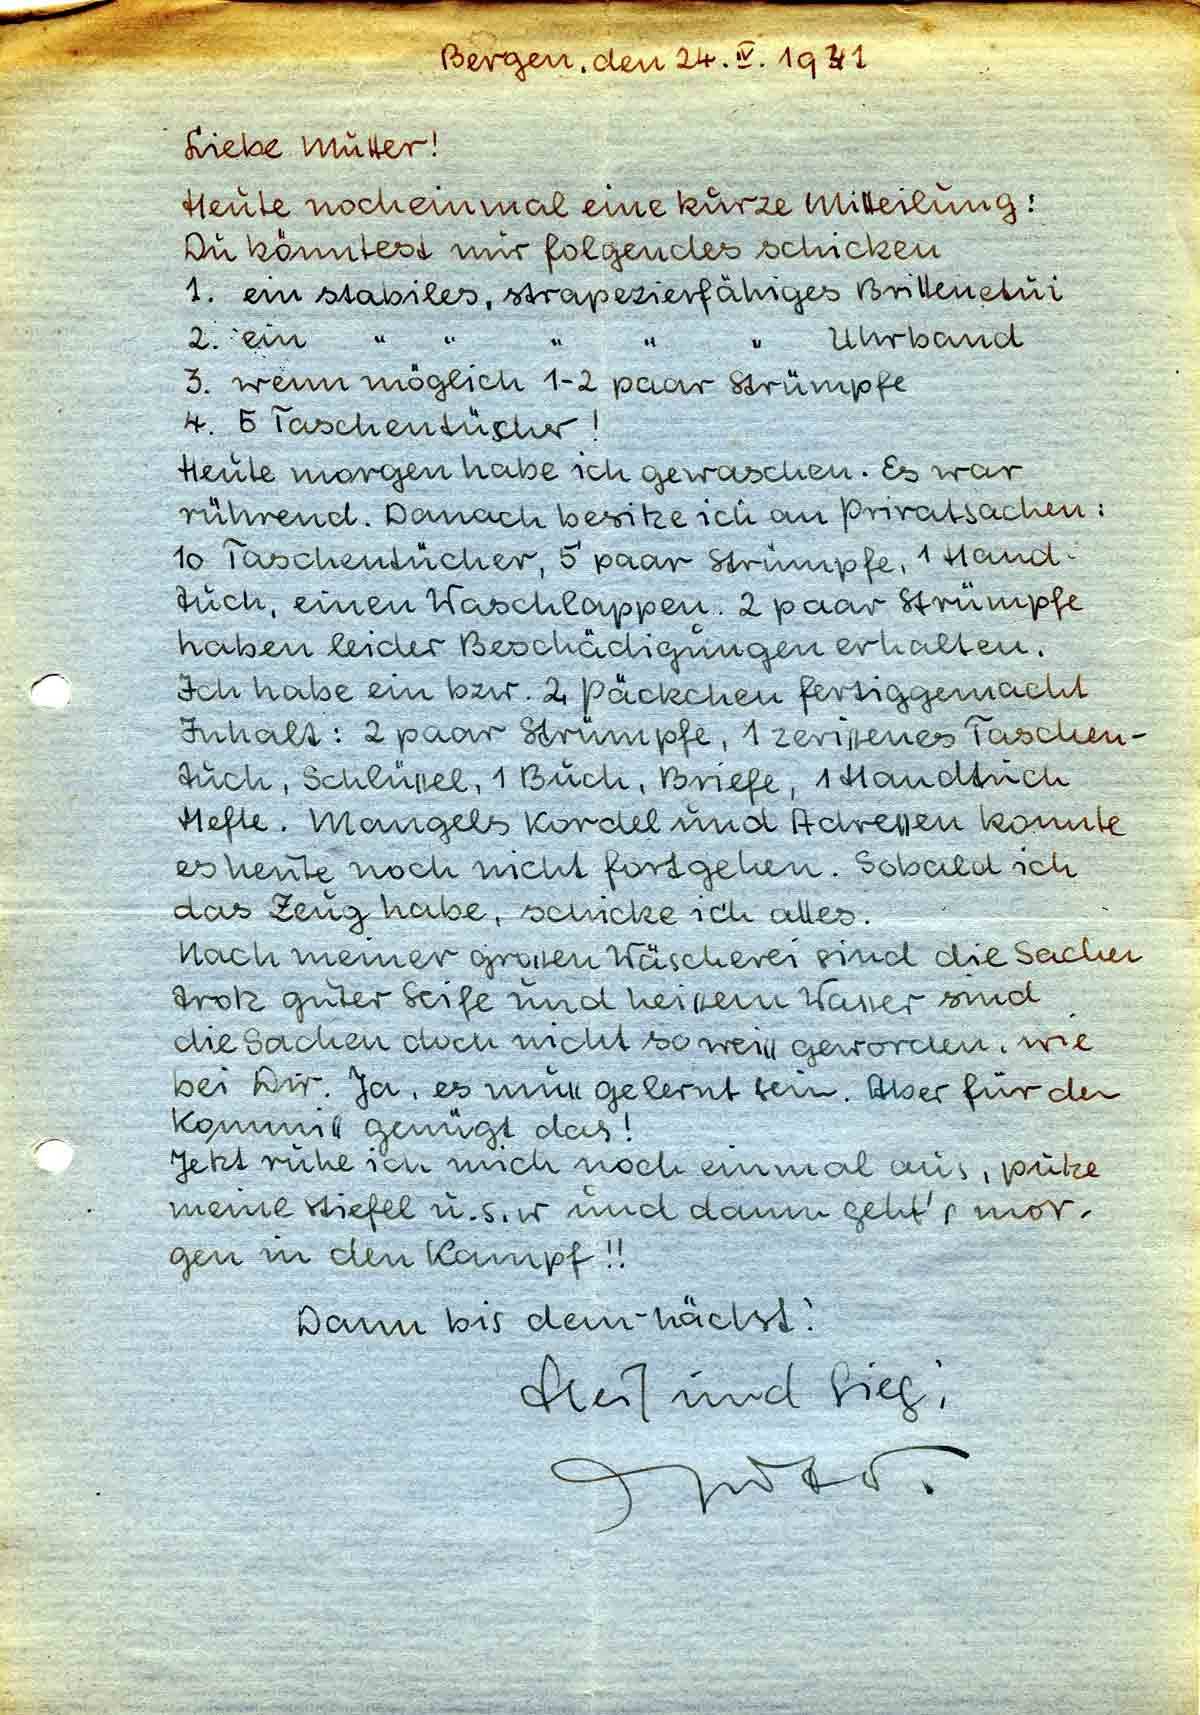 Bergen, den 24. IV. 1941
Liebe Mutter!
Heute nocheinmal eine kurze Mitteilung:
Du könntest mir folgendes schicken
1. ein stabiles, strapezierfähiges Brillenetui
2. ein " " " " " Uhrband
3. wenn möglich 1-2 paar Strümpfe
4. 5 Taschentücher!
Heute morgen habe ich gewaschen. Es war
rührend. Danach besitze ich an Privatsachen:
10 Taschentücher, 5 paar Strümpfe, 1 Hand-
tuch, einen Waschlappen. 2 paar Strümpfe
haben leider Beschädigungen erhalten.
Ich habe ein bzw. 2 Päckchen fertiggemacht
Inhalt: 2 paar Strümpfe, 1 zerissenes Taschen-
tuch, Schlüssel, 1 Buch, Briefe, 1 Handtuch
Hefte. Mangels Kordel und Adressen konnte
es heute noch nicht fortgehen. Sobald ich
das Zeug habe, schicke ich alles.
Nach meiner grossen Wäscherei sind die Sachen
trotz guter Seife und heissem Wasser sind
die Sachen doch nicht so weiss geworden, wie
bei Dir. Ja, es muss gelernt sein. Aber für den
Kommiss genügt das!
Jetzt ruhe ich mich noch einmal aus, putze
meine Stiefel u.s.w und dann geht's mor-
gen in den Kampf!!
Dann bis dem-nächst!
Heil und Sieg!